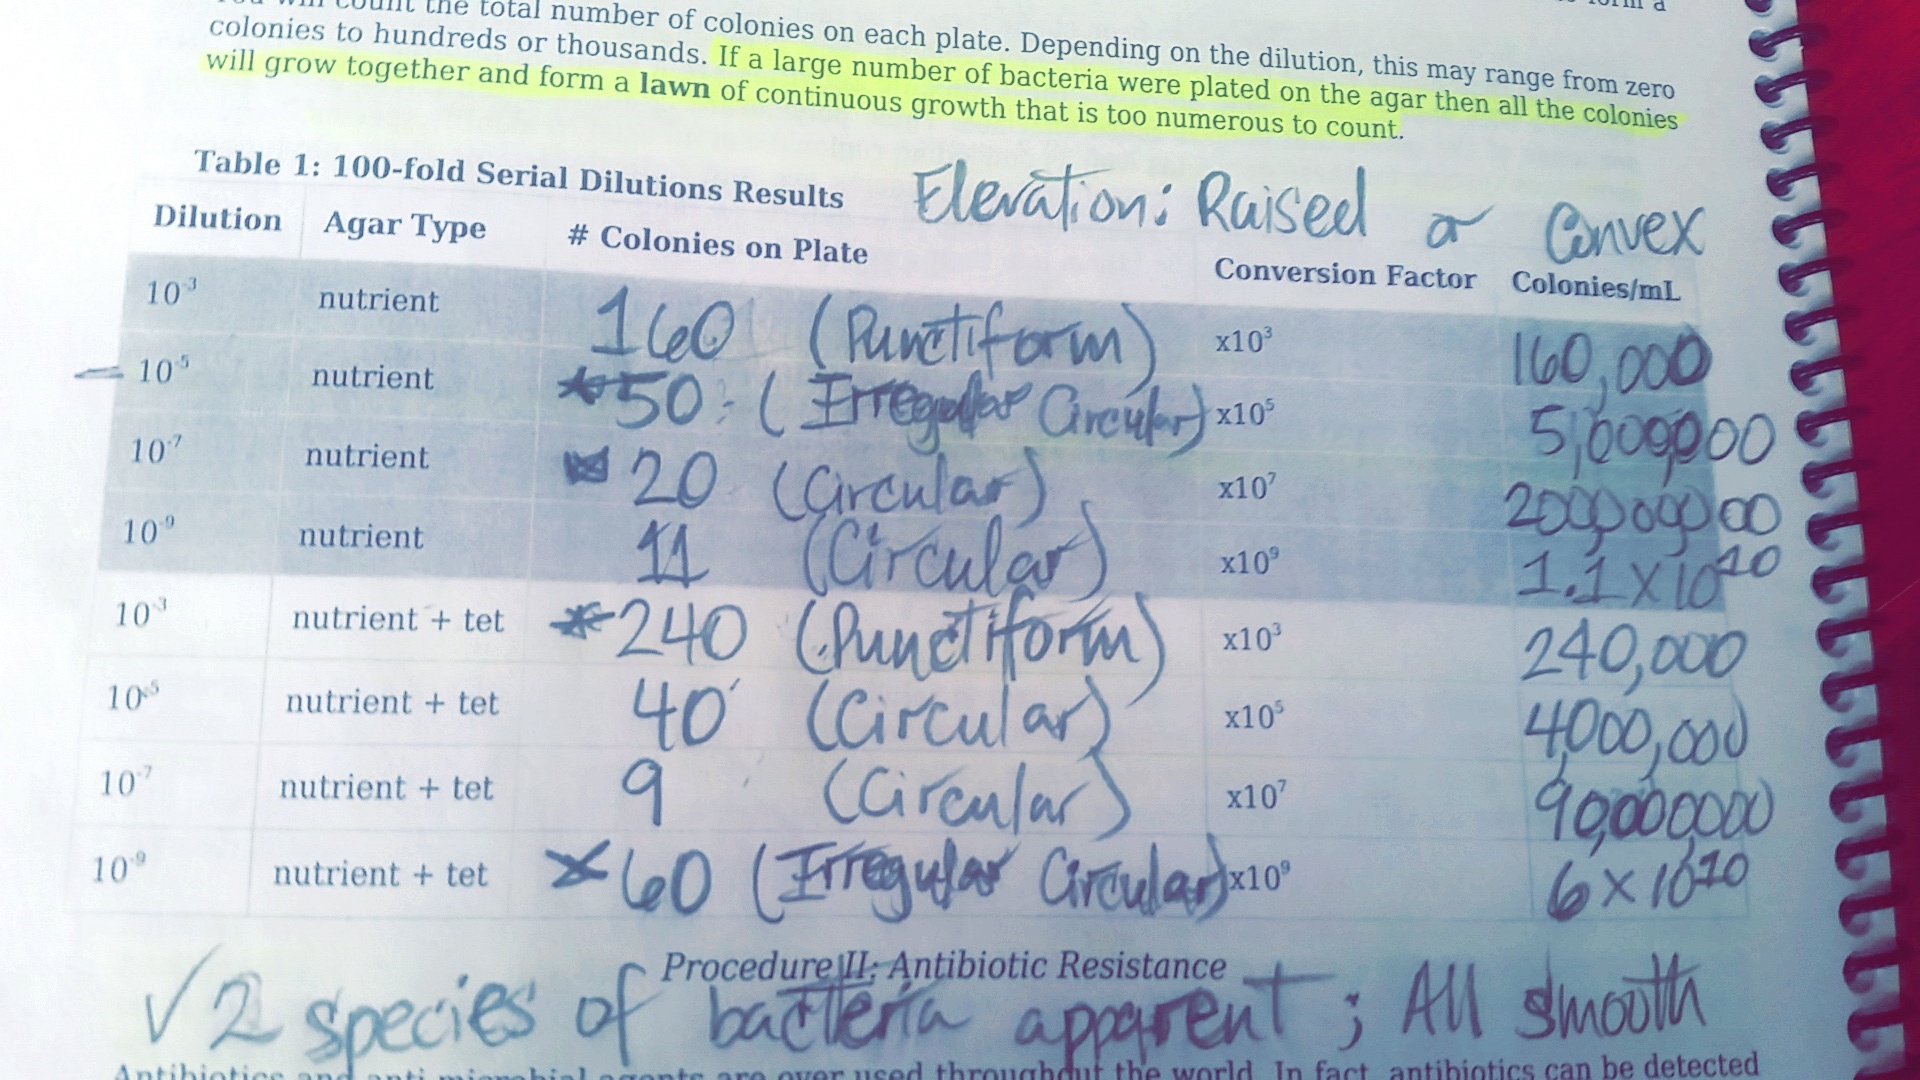 You will count the total number of colonies on each plate. Depending on the dilution, this may range from zero
colonies to hundreds or thousands. If a large number of bacteria were plated on the agar then all the colonies
will grow together and form a lawn of continuous growth that is too numerous to count.
Table 1: 100-fold Serial Dilutions Results
Elevation: Raised or Convex
Dilution Agar Type # Colonies on Plate Conversion Factor Colonies/mL
10⁻³ nutrient 160 (Punctiform) x10³ 160,000
10⁻⁵ nutrient *50 (Irregular Circular) x10⁵ 5,000,000
10⁻⁷ nutrient 20 (Circular) x10⁷ 200,000,000
10⁻⁹ nutrient 11 (Circular) x10⁹ 1.1 x 10¹⁰
10⁻³ nutrient + tet *240 (Punctiform) x10³ 240,000
10⁻⁵ nutrient + tet 40 (Circular) x10⁵ 4000,000
10⁻⁷ nutrient + tet 9 (Circular) x10⁷ 90,000,000
10⁻⁹ nutrient + tet *60 (Irregular Circular) x10⁹ 6 x 10¹⁰
Procedure II: Antibiotic Resistance
✓ 2 species of bacteria apparent; All smooth
Antibiotics and anti-microbial agents are over used throughout the world. In fact, antibiotics can be detected